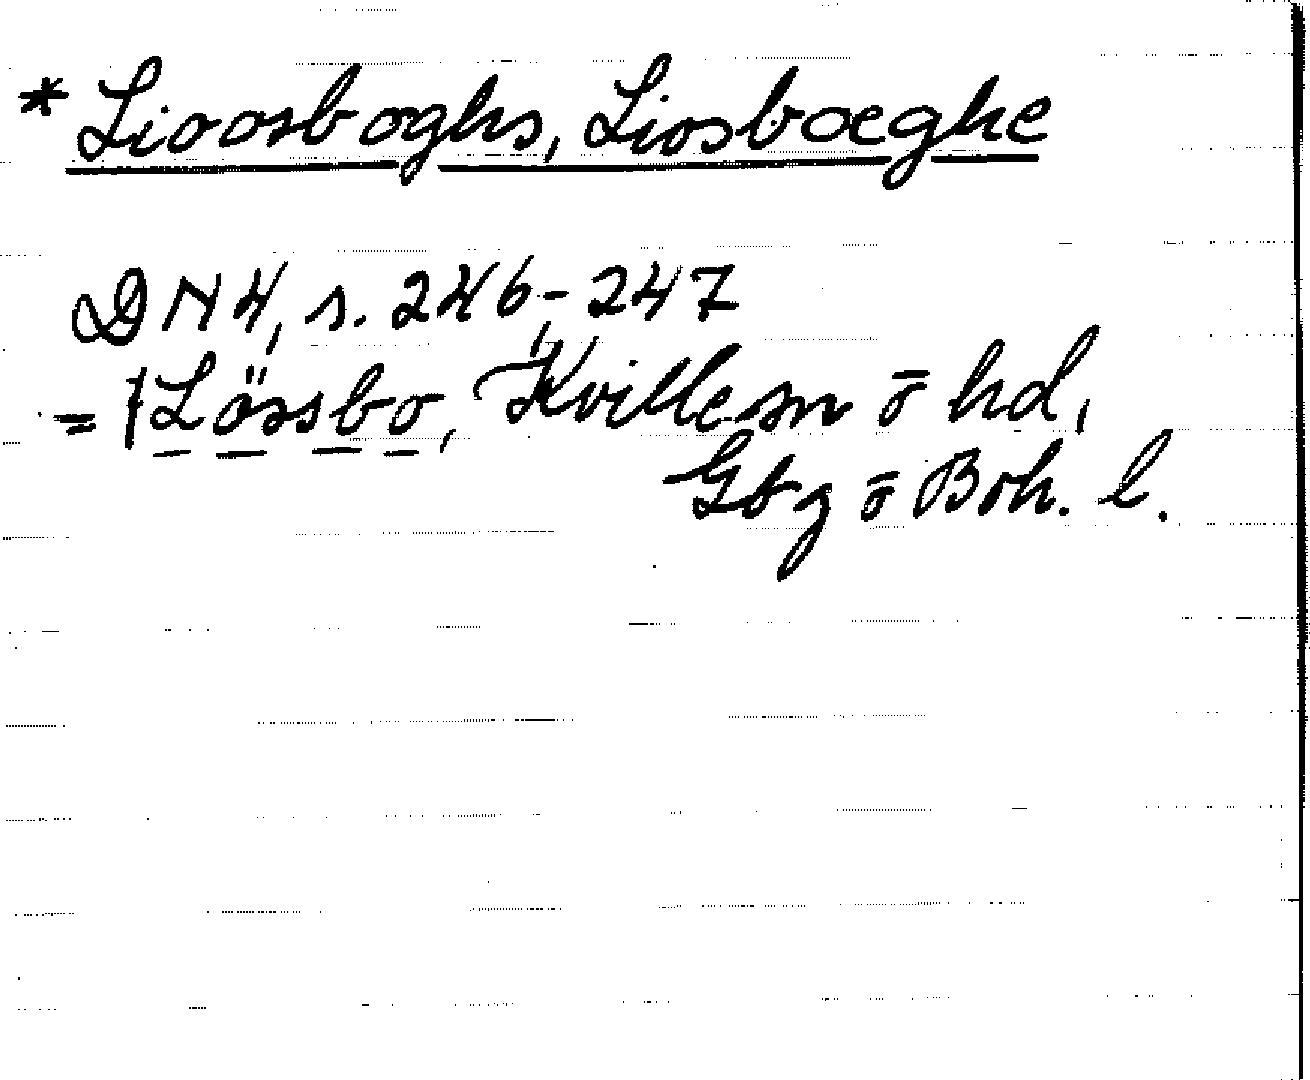 * Lioosboghs, Liosbœghe
DN4, s. 246-247
= Lössbo, Kville sn ō hd,
Gbg ō Boh. l.